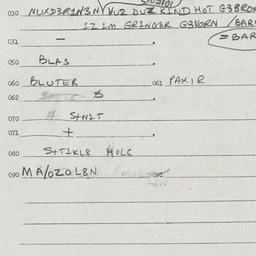 030 NUXD3R1N3N VUZ DUZ KIND HOT G3BROX
1Z 1M GR1NG3R G3VORN /BAR
031 — = BAR
050 BLAS.
060 BLUTER 061 PAX1R
062 S
070 S+N1T
071 +.
080 S+T1KL8 HOLC
090 MA/OZOL8N 091